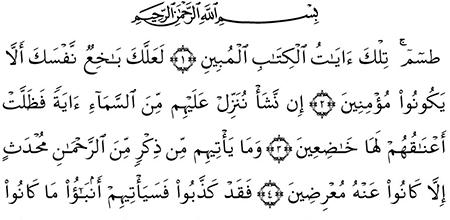 بِسْمِ اللَّهِ الرَّحْمَٰنِ الرَّحِيمِ
طسٓمٓ ۚ تِلْكَ ءَايَٰتُ ٱلْكِتَٰبِ ٱلْمُبِينِ ﴿١﴾ لَعَلَّكَ بَٰخِعٌ نَّفْسَكَ أَلَّا
يَكُونُوا۟ مُؤْمِنِينَ ﴿٢﴾ إِن نَّشَأْ نُنَزِّلْ عَلَيْهِم مِّنَ ٱلسَّمَآءِ ءَايَةً فَظَلَّتْ
أَعْنَٰقُهُمْ لَهَا خَٰضِعِينَ ﴿٣﴾ وَمَا يَأْتِيهِم مِّن ذِكْرٍ مِّنَ ٱلرَّحْمَٰنِ مُحْدَثٍ
إِلَّا كَانُوا۟ عَنْهُ مُعْرِضِينَ ﴿٤﴾ فَقَدْ كَذَّبُوا۟ فَسَيَأْتِيهِمْ أَنۢبَٰٓؤُا۟ مَا كَانُوا۟